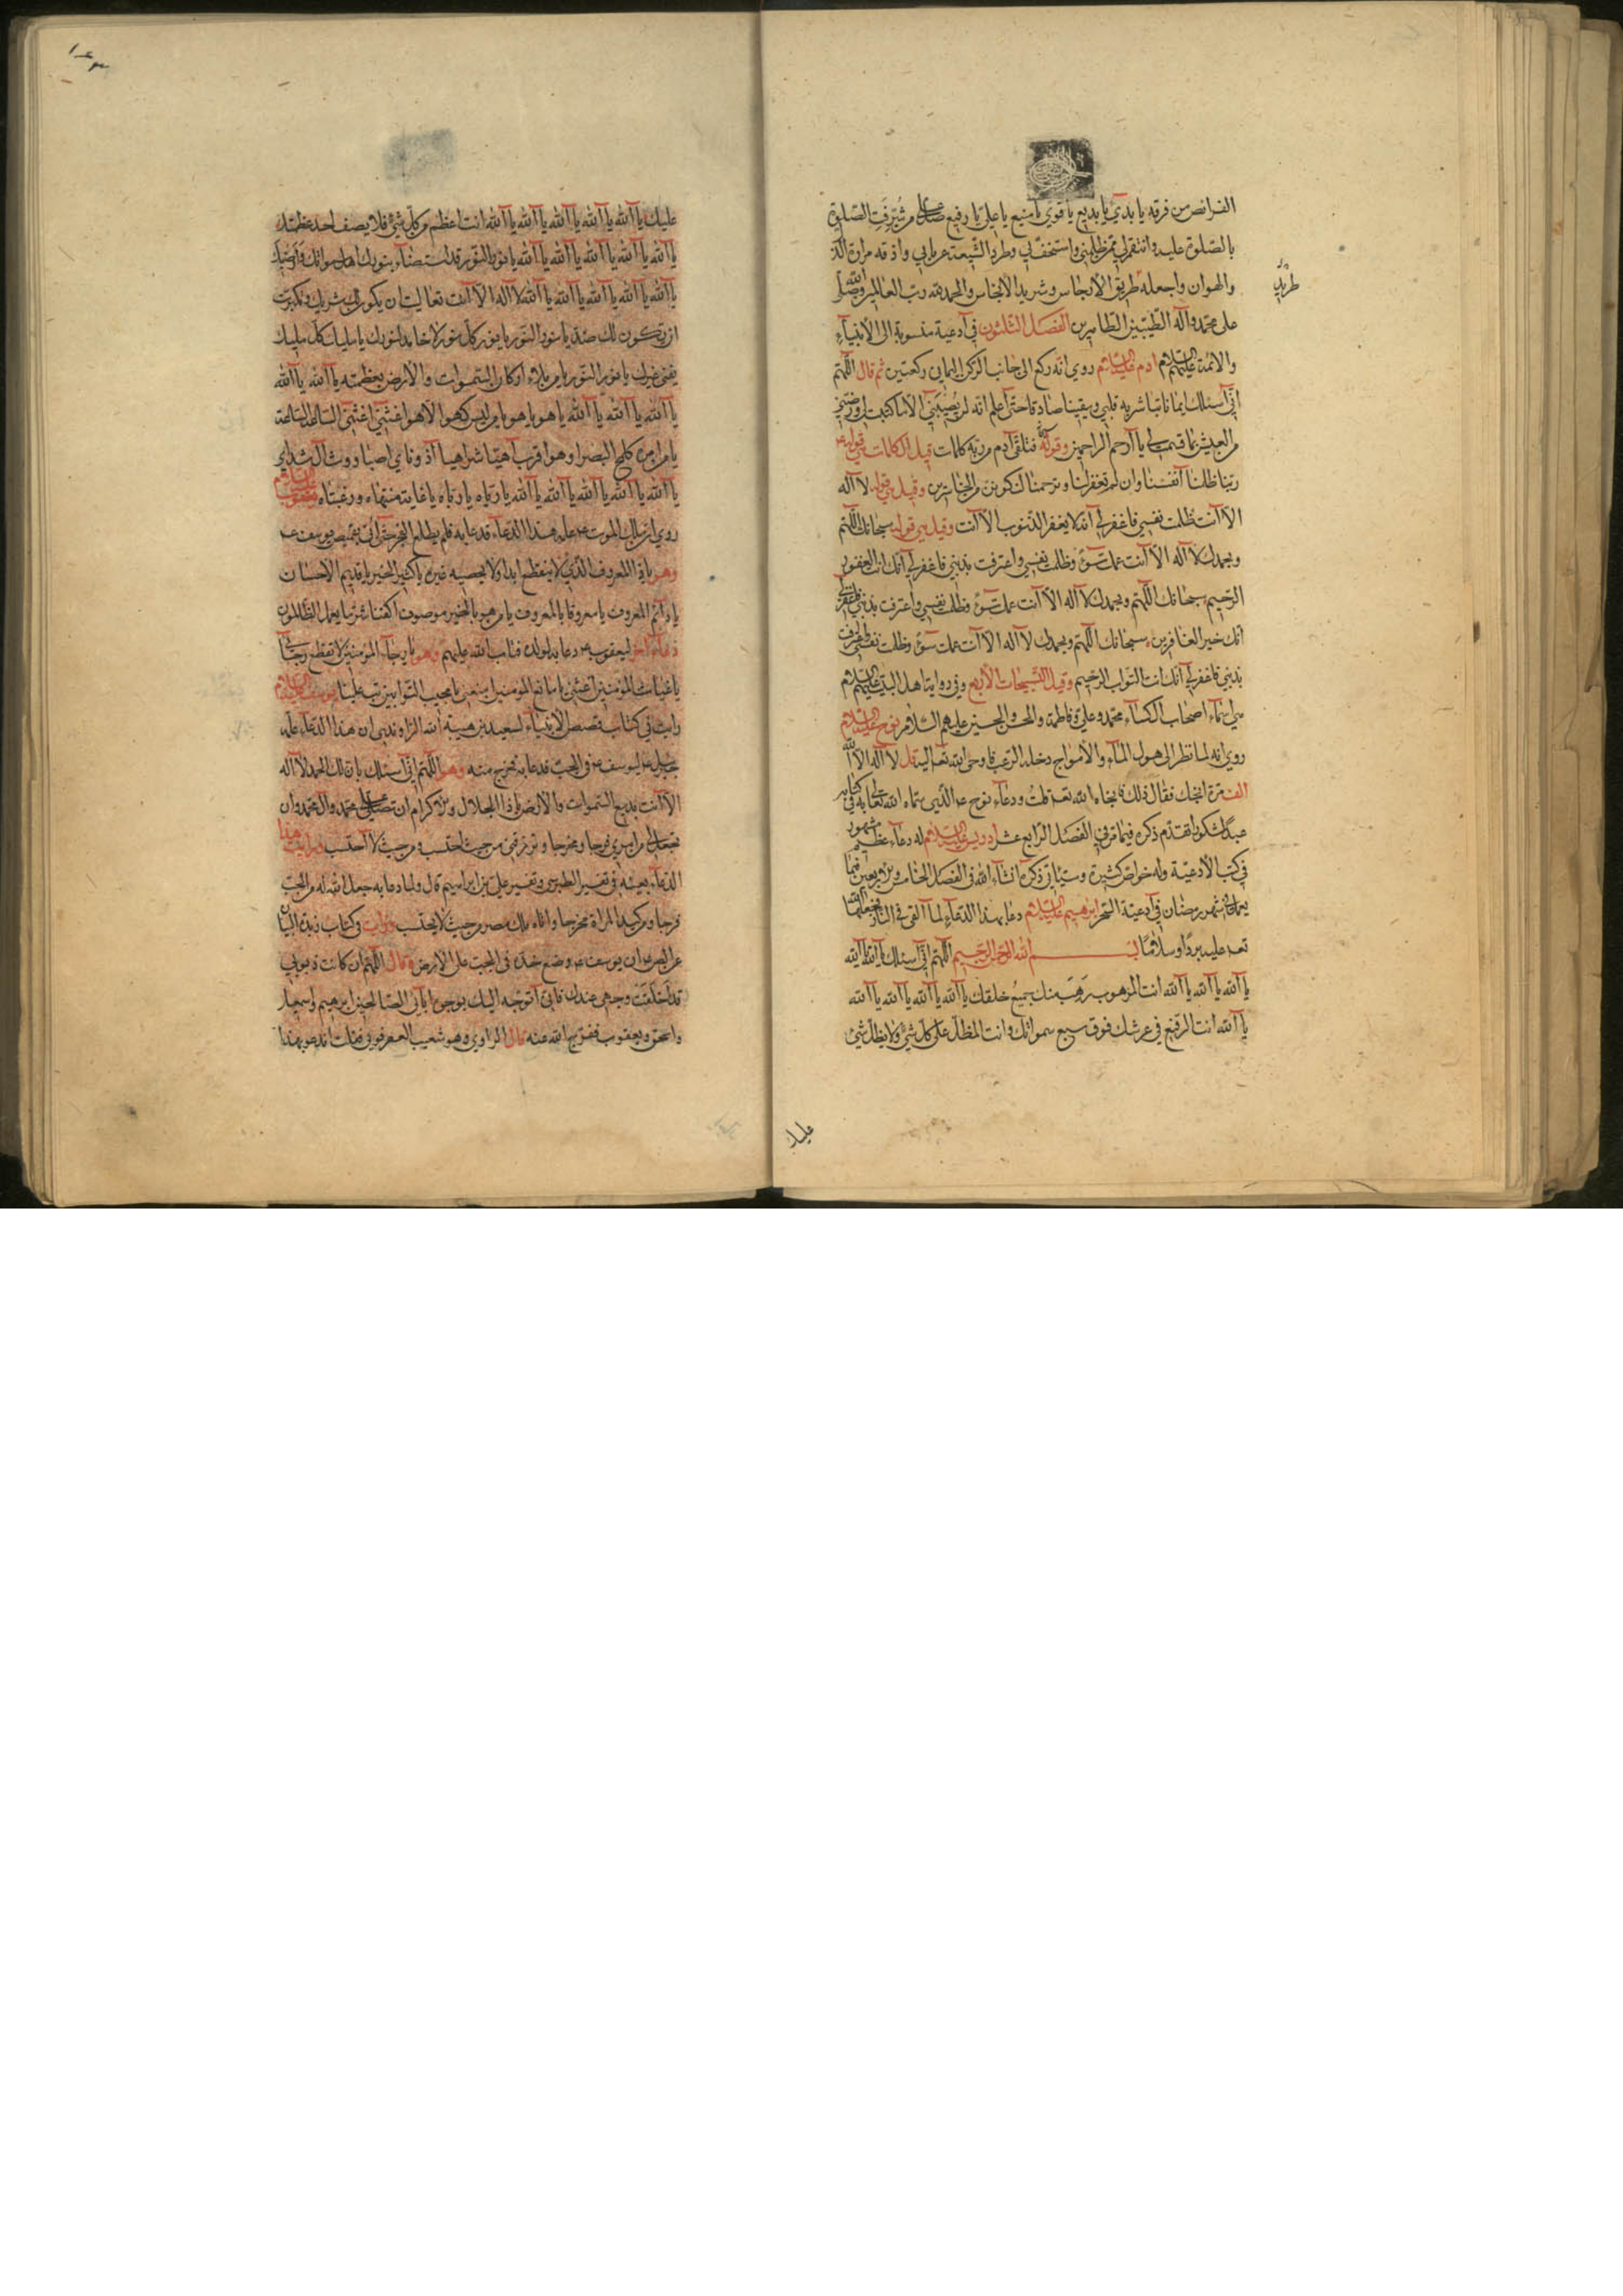 الفرائص من فرقه يا بدئ يا بديع يا قوي يا منيع يا علي يا رفيع صل على من شرفت الصلوة
بالصلوة عليه وانتقم لي ممن ظلمني واستخف بي وطرد الشيعة عن بابي واذقه مرارة الذل
والهوان واجعله طريد الأرجاس وشريد الأنجاس والحمد لله رب العالمين وصلى الله
طريد
على محمد وآله الطيبين الطاهرين الفصل الثلثون في ادعية منسوبة الى الأنبياء
والائمة عليهم السلام ادم عليه السلام روي انه ركع الى جانب الركن اليماني ركعتين ثم قال اللهم
اني اسئلك ايمانا تباشر به قلبي ويقينا صادقا حتى اعلم انه لن يصيبني الا ما كتبت لي ورضني
من العيش بما قسمت لي يا ارحم الراحمين وقوله فتلقى آدم من ربه كلمات قيل الكلمات هي قوله
ربنا ظلمنا انفسنا وان لم تغفر لنا وترحمنا لنكونن من الخاسرين وقيل هي قوله لا اله
الا انت ظلمت نفسي فاغفر لي انه لا يغفر الذنوب الا انت وقيل هي قوله سبحانك اللهم
وبحمدك لا اله الا انت عملت سوء وظلمت نفسي واعترفت بذنبي فاغفر لي انك انت الغفور
الرحيم سبحانك اللهم وبحمدك لا اله الا انت عملت سوء وظلمت نفسي واعترفت بذنبي فاغفر لي
انك خير الغافرين سبحانك اللهم وبحمدك لا اله الا انت عملت سوء وظلمت نفسي واعترفت
بذنبي فاغفر لي انك انت التواب الرحيم وقيل التسبيحات الأربع وفي رواية اهل البيت عليهم السلام
هي اسماء اصحاب الكساء محمد وعلي وفاطمة والحسن والحسين عليهم السلام نوح عليه السلام
روي انه لما نظر الى هول الماء والأمواج دخله الرعب فاوحى الله تعالى اليه قل لا اله الا الله
الف مرة انجك فقال ذلك فنجاه الله تعه قلت ودعاء نوح عه الذي سماه الله تعالى به في كتابه
عبدا شكورا تقدم ذكره فيما مر في الفصل الرابع عشر ادريس عليه السلام له دعاء عظيم مشهور
في كتب الأدعية وله خواص كثيرة وسيأتي ذكره انشاء الله في الفصل الخامس والاربعين فيما
يعمل في شهر رمضان في ادعية السحر ابرهيم عليه السلام دعا بهذا الدعاء لما القي في النار فجعلها الله
تعه عليه بردا وسلاما بسم الله الرحمن الرحيم اللهم اني اسئلك يا الله يا الله
يا الله يا الله يا الله انت المرهوب رهب منك جميع خلقك يا الله يا الله يا الله يا الله
يا الله انت الرفيع في عرشك فوق سبع سمواتك وانت المظل على كل شئ ولا يظل شئ
عليك
عليك يا الله يا الله يا الله يا الله يا الله انت اعظم من كل شئ فلا يصف احد عظمتك
يا الله يا الله يا الله يا الله يا الله يا نور النور قد استضاء بنورك اهل سمواتك وارضك
يا الله يا الله يا الله يا الله يا الله لا اله الا انت تعاليت ان يكون لك شريك وتكبرت
ان يكون لك ضد يا نور النور يا نور كل نور لا خامد لنورك يا مليك كل مليك
يفنى غيرك يا نور النور يا من ملاء اركان السموات والأرض بعظمته يا الله يا الله
يا الله يا الله يا الله يا هو يا هو يا من ليس كهو الا هو اغثني اغثني الساعة الساعة
يا من امره كلمح البصر او هو اقرب اهيا شراهيا آذوناي اصباوث آل شداي
يا الله يا الله يا الله يا الله يا الله يا رباه يا رباه يا غاية منتهاه ورغبتاه يعقوب عليه السلام
روي ان ملك الموت عه علمه هذا الدعاء فدعا به فلم يطلع الفجر حتى اتي بقميص يوسف عه
وهو يا ذا المعروف الذي لا ينقطع ابدا ولا يحصيه غيره يا كثير الخير يا قديم الاحسان
يا دائم المعروف يا معروفا بالمعروف يا من هو بالخير موصوف اكفنا شر ما يعمل الظالمون
دعاء اخر ليعقوب عه دعا به لولده فتاب الله عليهم وهو يا رجاء المؤمنين لا تقطع رجائي
يا غياث المؤمنين اغثني يا مانع المؤمنين امنعني يا محب التوابين تب علينا يوسف عليه السلام
رايت في كتاب قصص الأنبياء لسعيد بن هبة الله الراوندي ان هذا الدعاء علمه
جبرئيل عه ليوسف عه في الجب فدعا به فخرج منه وهو اللهم اني اسئلك بان لك الحمد لا اله
الا انت بديع السموات والأرض يا ذا الجلال والاكرام ان تصلي على محمد وال محمد وان
تجعل لي من امري فرجا ومخرجا وترزقني من حيث احتسب ومن حيث لا احتسب ورايت هذا
الدعاء بعينه في تفسير الطبرسي وتفسير علي بن ابراهيم قال ولما دعا به جعل الله له من الجب
فرجا ومن كيد المراة مخرجا واتاه ملك مصر من حيث لا يحتسب ورايت في كتاب زبدة البيان
عن الصه ان يوسف عه وضع خده في الجب على الارض وقال اللهم ان كانت ذنوبي
قد اخلقت وجهي عندك فاني اتوجه اليك بوجوه ابائي الصالحين ابرهيم واسمعيل
واسحق ويعقوب ففرج الله عنه قال الراوي وهو شعيب العقرقوفي فقلت اندعو بهذا